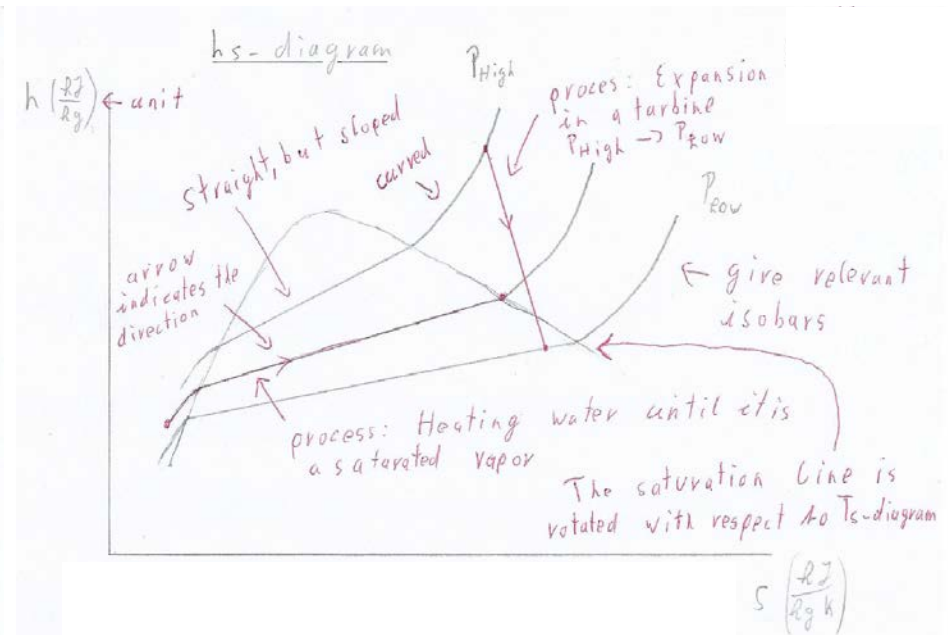 hs-diagram
h (kJ/kg) ← unit
P_High
proces: Expansion
in a turbine
P_High → P_Low
straight, but sloped
curved
P_Low
arrow
indicates the
direction
← give relevant
isobars
process: Heating water until it is
a saturated vapor
The saturation line is
rotated with respect to Ts-diagram
s (kJ/kg K)